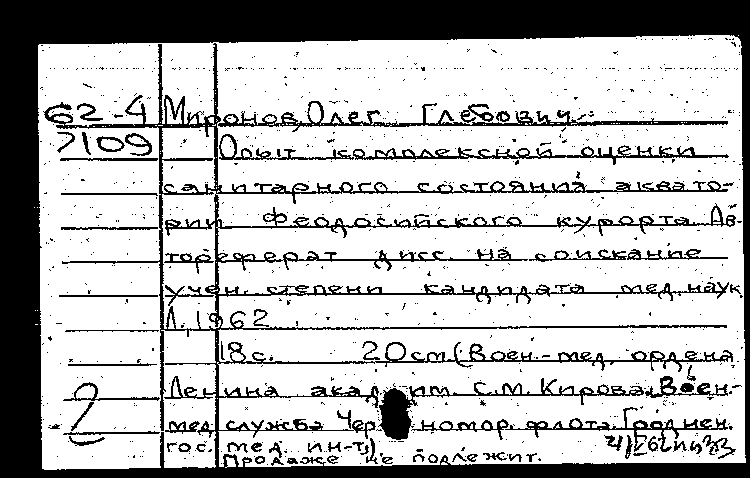 62-4 Миронов, Олег Глебович.
7109 Опыт комплексной оценки
санитарного состояния аквато-
рии Феодосийского курорта. Ав-
тореферат дисс. на соискание
учен. степени кандидата мед. наук
Л., 1962
18 с. 20 см (Воен.-мед. ордена
Ленина акад. им. С.М. Кирова. Воен-
2
мед служба Черномор. флота. Гроднен.
гос. мед. ин-т)
Продаже не подлежит.